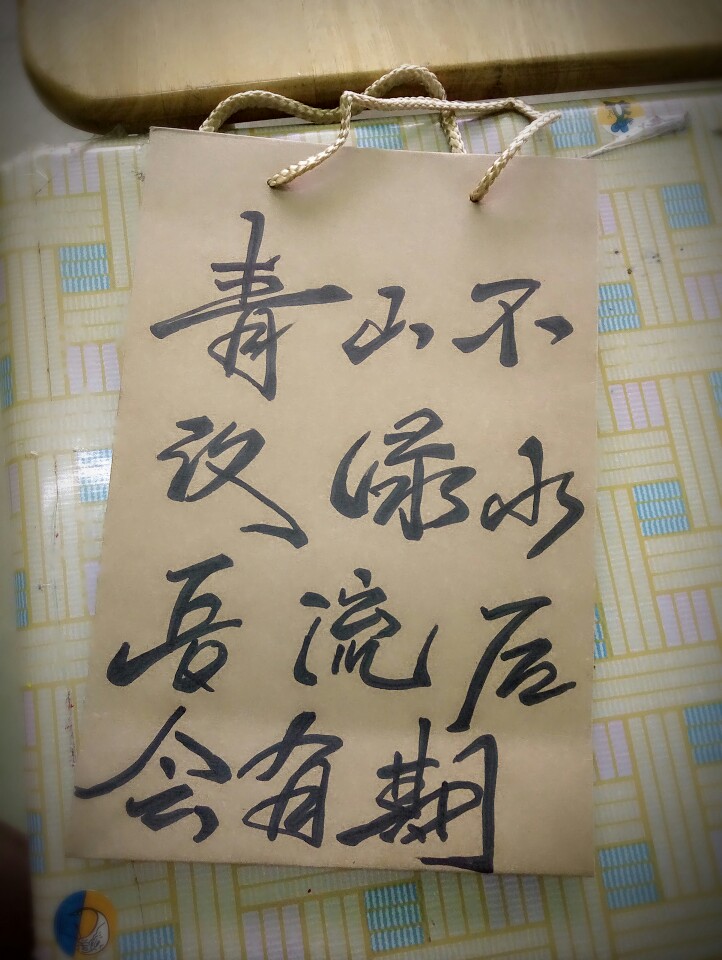 青山不
改绿水
長流后
会有期